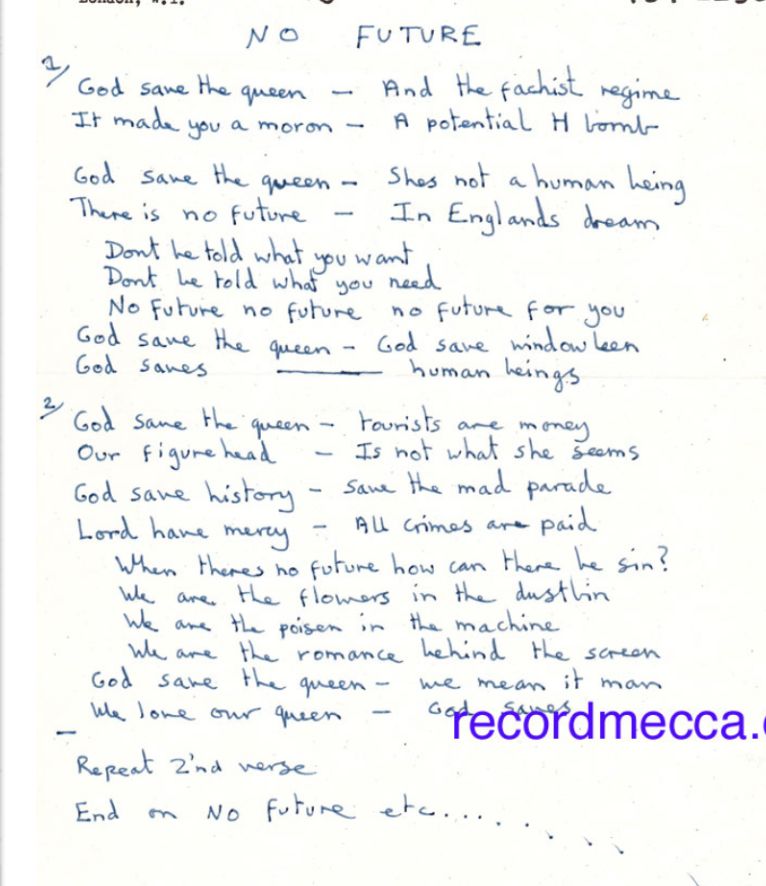 London, W.1.
NO FUTURE
1/
God save the queen – And the fachist regime
It made you a moron – A potential H bomb
God save the queen – Shes not a human being
There is no future – In Englands dream
Dont be told what you want
Dont be told what you need
No future no future no future for you
God save the queen – God save windowleen
God saves ——— human beings
2/
God save the queen – tourists are money
Our figurehead – Is not what she seems
God save history – Save the mad parade
Lord have mercy – All crimes are paid
When theres no future how can there be sin?
We are the flowers in the dustbin
We are the poisen in the machine
We are the romance behind the screen
God save the queen – we mean it man
We love our queen – God saves
recordmecca.
Repeat 2'nd verse
End on No future etc.........